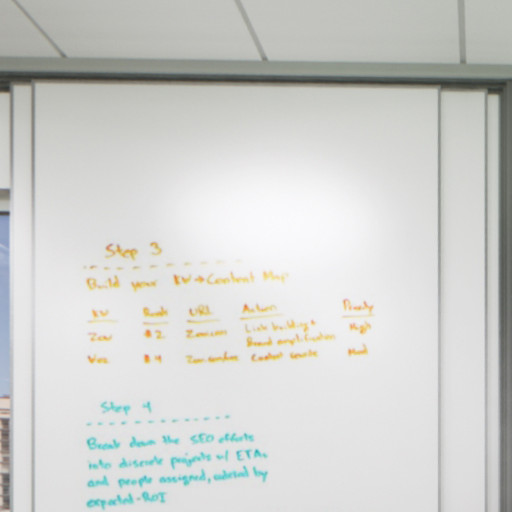 Step 3
Build your KW→Content Map
KW Rank URL Action Priority
#2 Link building + High
Brand amplification
#4 Content Med
Step 4
Break down the SEO efforts
into discrete projects w/ ETAs
and people assigned, ordered by
expected-ROI